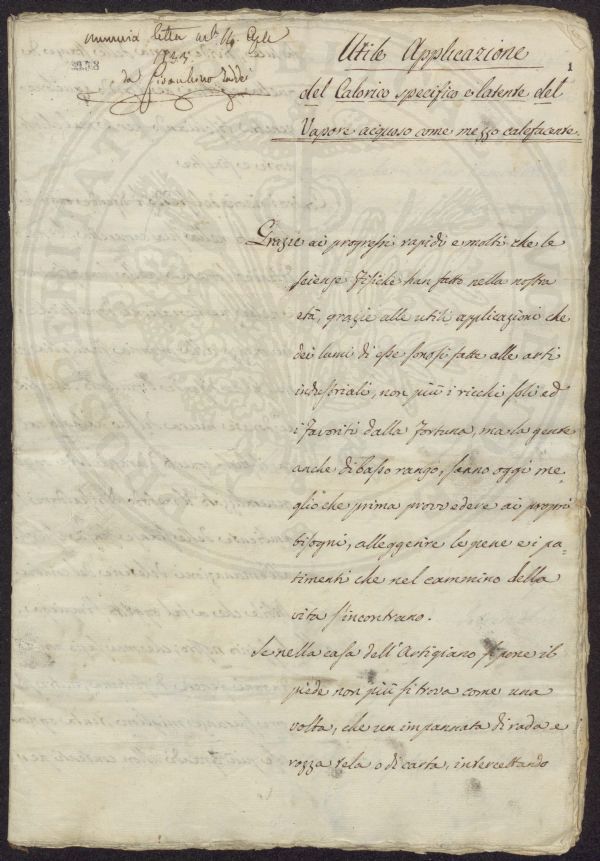 memoria letta
da
Utile Applicazione
1
del Calorico specifico e latente del
Vapore acquoso come mezzo calefacente.
Grazie ai progressi rapidi e molti che le
scienze Fisiche han fatto nella nostra
età, grazie alle utili applicazioni che
dei lumi di esse sonosi fatte alle arti
industriali, non più i ricchi soli ed
i favoriti dalla Fortuna, ma la gente
anche di basso rango, sanno oggi me-
glio che prima provvedere ai proprj
bisogni, alleggerire le pene e i pa-
timenti che nel cammino della
vita s'incontrano.
Se nella casa dell'Artigiano si pone il
piede non più si trova come una
volta, che un impannata di rada e
rozza tela o di carta, intercettando